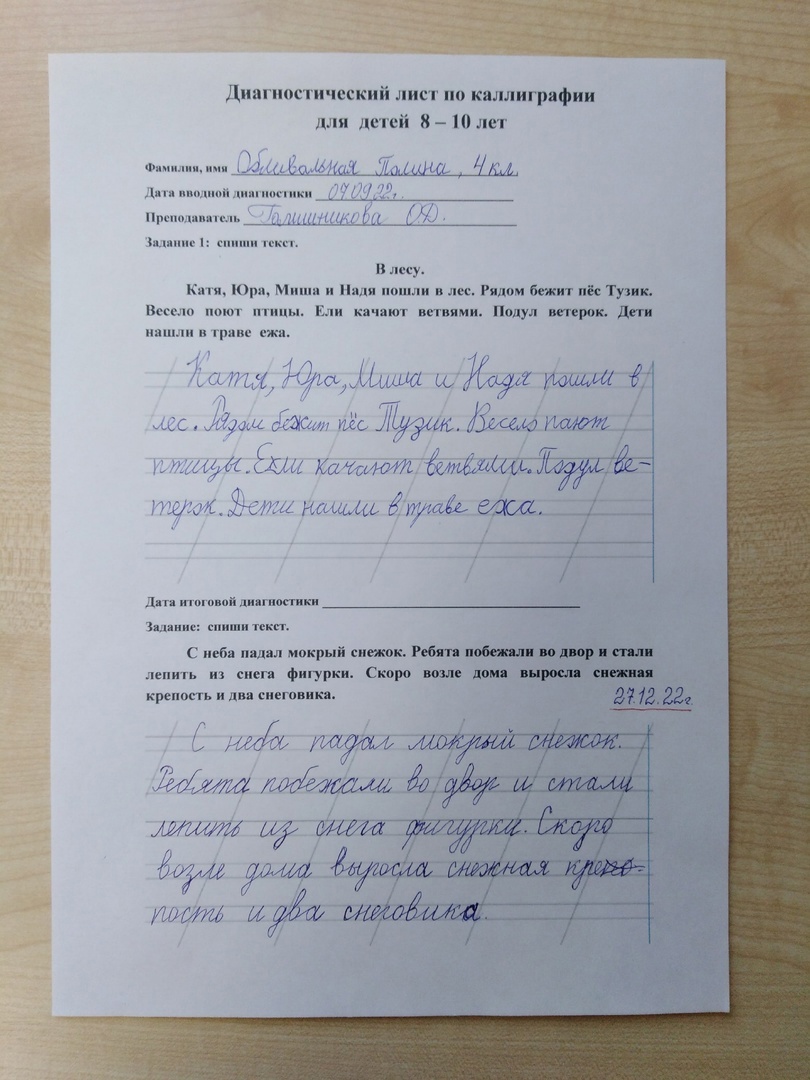 Диагностический лист по каллиграфии
для детей 8 – 10 лет
Фамилия, имя Обливальная Полина, 4 кл.
Дата вводной диагностики 07.09.22г.
Преподаватель Голишникова О.Д.
Задание 1: спиши текст.
В лесу.
Катя, Юра, Миша и Надя пошли в лес. Рядом бежит пёс Тузик.
Весело поют птицы. Ели качают ветвями. Подул ветерок. Дети
нашли в траве ежа.
Катя, Юра, Миша и Надя пошли в
лес. Рядом бежит пёс Тузик. Весело пают
птицы. Ели качают ветвями. Подул ве-
терок. Дети нашли в траве ежа.
Дата итоговой диагностики
Задание: спиши текст.
С неба падал мокрый снежок. Ребята побежали во двор и стали
лепить из снега фигурки. Скоро возле дома выросла снежная
крепость и два снеговика.
27.12.22г.
С неба падал мокрый снежок.
Ребята побежали во двор и стали
лепить из снега фигурки. Скоро
возле дома выросла снежная кре-
пость и два снеговика.